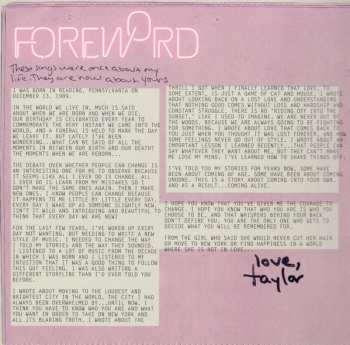 FOREWORD
These songs were once about my
life. They are now about yours
I WAS BORN IN READING, PENNSYLVANIA ON
DECEMBER 13, 1989.
IN THE WORLD WE LIVE IN, MUCH IS SAID
ABOUT WHEN WE ARE BORN AND WHEN WE DIE.
OUR BIRTHDAY IS CELEBRATED EVERY YEAR TO
COMMEMORATE THE VERY INSTANT WE CAME INTO THE
WORLD, AND A FUNERAL IS HELD TO MARK THE DAY
WE LEAVE IT. BUT LATELY I'VE BEEN
WONDERING...WHAT CAN BE SAID OF ALL THE
MOMENTS IN BETWEEN OUR BIRTH AND OUR DEATH?
THE MOMENTS WHEN WE ARE REBORN...
THE DEBATE OVER WHETHER PEOPLE CAN CHANGE IS
AN INTERESTING ONE FOR ME TO OBSERVE BECAUSE
IT SEEMS LIKE ALL I EVER DO IS CHANGE. ALL
I EVER DO IS LEARN FROM MY MISTAKES SO I
DON'T MAKE THE SAME ONES AGAIN. THEN I MAKE
NEW ONES. I KNOW PEOPLE CAN CHANGE BECAUSE
IT HAPPENS TO ME LITTLE BY LITTLE EVERY DAY.
EVERY DAY I WAKE UP AS SOMEONE SLIGHTLY NEW.
ISN'T IT WILD AND INTRIGUING AND BEAUTIFUL TO
THINK THAT EVERY DAY WE ARE NEW?
FOR THE LAST FEW YEARS, I'VE WOKEN UP EVERY
DAY NOT WANTING, BUT NEEDING TO WRITE A NEW
STYLE OF MUSIC. I NEEDED TO CHANGE THE WAY
I TOLD MY STORIES AND THE WAY THEY SOUNDED.
I LISTENED TO A LOT OF MUSIC FROM THE DECADE
IN WHICH I WAS BORN AND I LISTENED TO MY
INTUITION THAT IT WAS A GOOD THING TO FOLLOW
THIS GUT FEELING. I WAS ALSO WRITING A
DIFFERENT STORYLINE THAN I'D EVER TOLD YOU
BEFORE.
I WROTE ABOUT MOVING TO THE LOUDEST AND
BRIGHTEST CITY IN THE WORLD, THE CITY I HAD
ALWAYS BEEN OVERWHELMED BY...UNTIL NOW. I
THINK YOU HAVE TO KNOW WHO YOU ARE AND WHAT
YOU WANT IN ORDER TO TAKE ON NEW YORK AND
ALL ITS BLARING TRUTH. I WROTE ABOUT THE
THRILL I GOT WHEN I FINALLY LEARNED THAT LOVE, TO
SOME EXTENT, IS JUST A GAME OF CAT AND MOUSE. I WROTE
ABOUT LOOKING BACK ON A LOST LOVE AND UNDERSTANDING
THAT NOTHING GOOD COMES WITHOUT LOSS AND HARDSHIP AND
CONSTANT STRUGGLE. THERE IS NO "RIDING OFF INTO THE
SUNSET," LIKE I USED TO IMAGINE. WE ARE NEVER OUT OF
THE WOODS, BECAUSE WE ARE ALWAYS GOING TO BE FIGHTING
FOR SOMETHING. I WROTE ABOUT LOVE THAT COMES BACK TO
YOU JUST WHEN YOU THOUGHT IT WAS LOST FOREVER, AND HOW
SOME FEELINGS NEVER GO OUT OF STYLE. I WROTE ABOUT AN
IMPORTANT LESSON I LEARNED RECENTLY... THAT PEOPLE CAN
SAY WHATEVER THEY WANT ABOUT ME, BUT THEY CAN'T MAKE
ME LOSE MY MIND. I'VE LEARNED HOW TO SHAKE THINGS OFF.
I'VE TOLD YOU MY STORIES FOR YEARS NOW. SOME HAVE
BEEN ABOUT COMING OF AGE. SOME HAVE BEEN ABOUT COMING
UNDONE. THIS IS A STORY ABOUT COMING INTO YOUR OWN,
AND AS A RESULT...COMING ALIVE.
I HOPE YOU KNOW THAT YOU'VE GIVEN ME THE COURAGE TO
CHANGE. I HOPE YOU KNOW THAT WHO YOU ARE IS WHO YOU
CHOOSE TO BE, AND THAT WHISPERS BEHIND YOUR BACK
DON'T DEFINE YOU. YOU ARE THE ONLY ONE WHO GETS TO
DECIDE WHAT YOU WILL BE REMEMBERED FOR.
FROM THE GIRL WHO SAID SHE WOULD NEVER CUT HER HAIR
OR MOVE TO NEW YORK OR FIND HAPPINESS IN A WORLD
WHERE SHE IS NOT IN LOVE...
love,
taylor